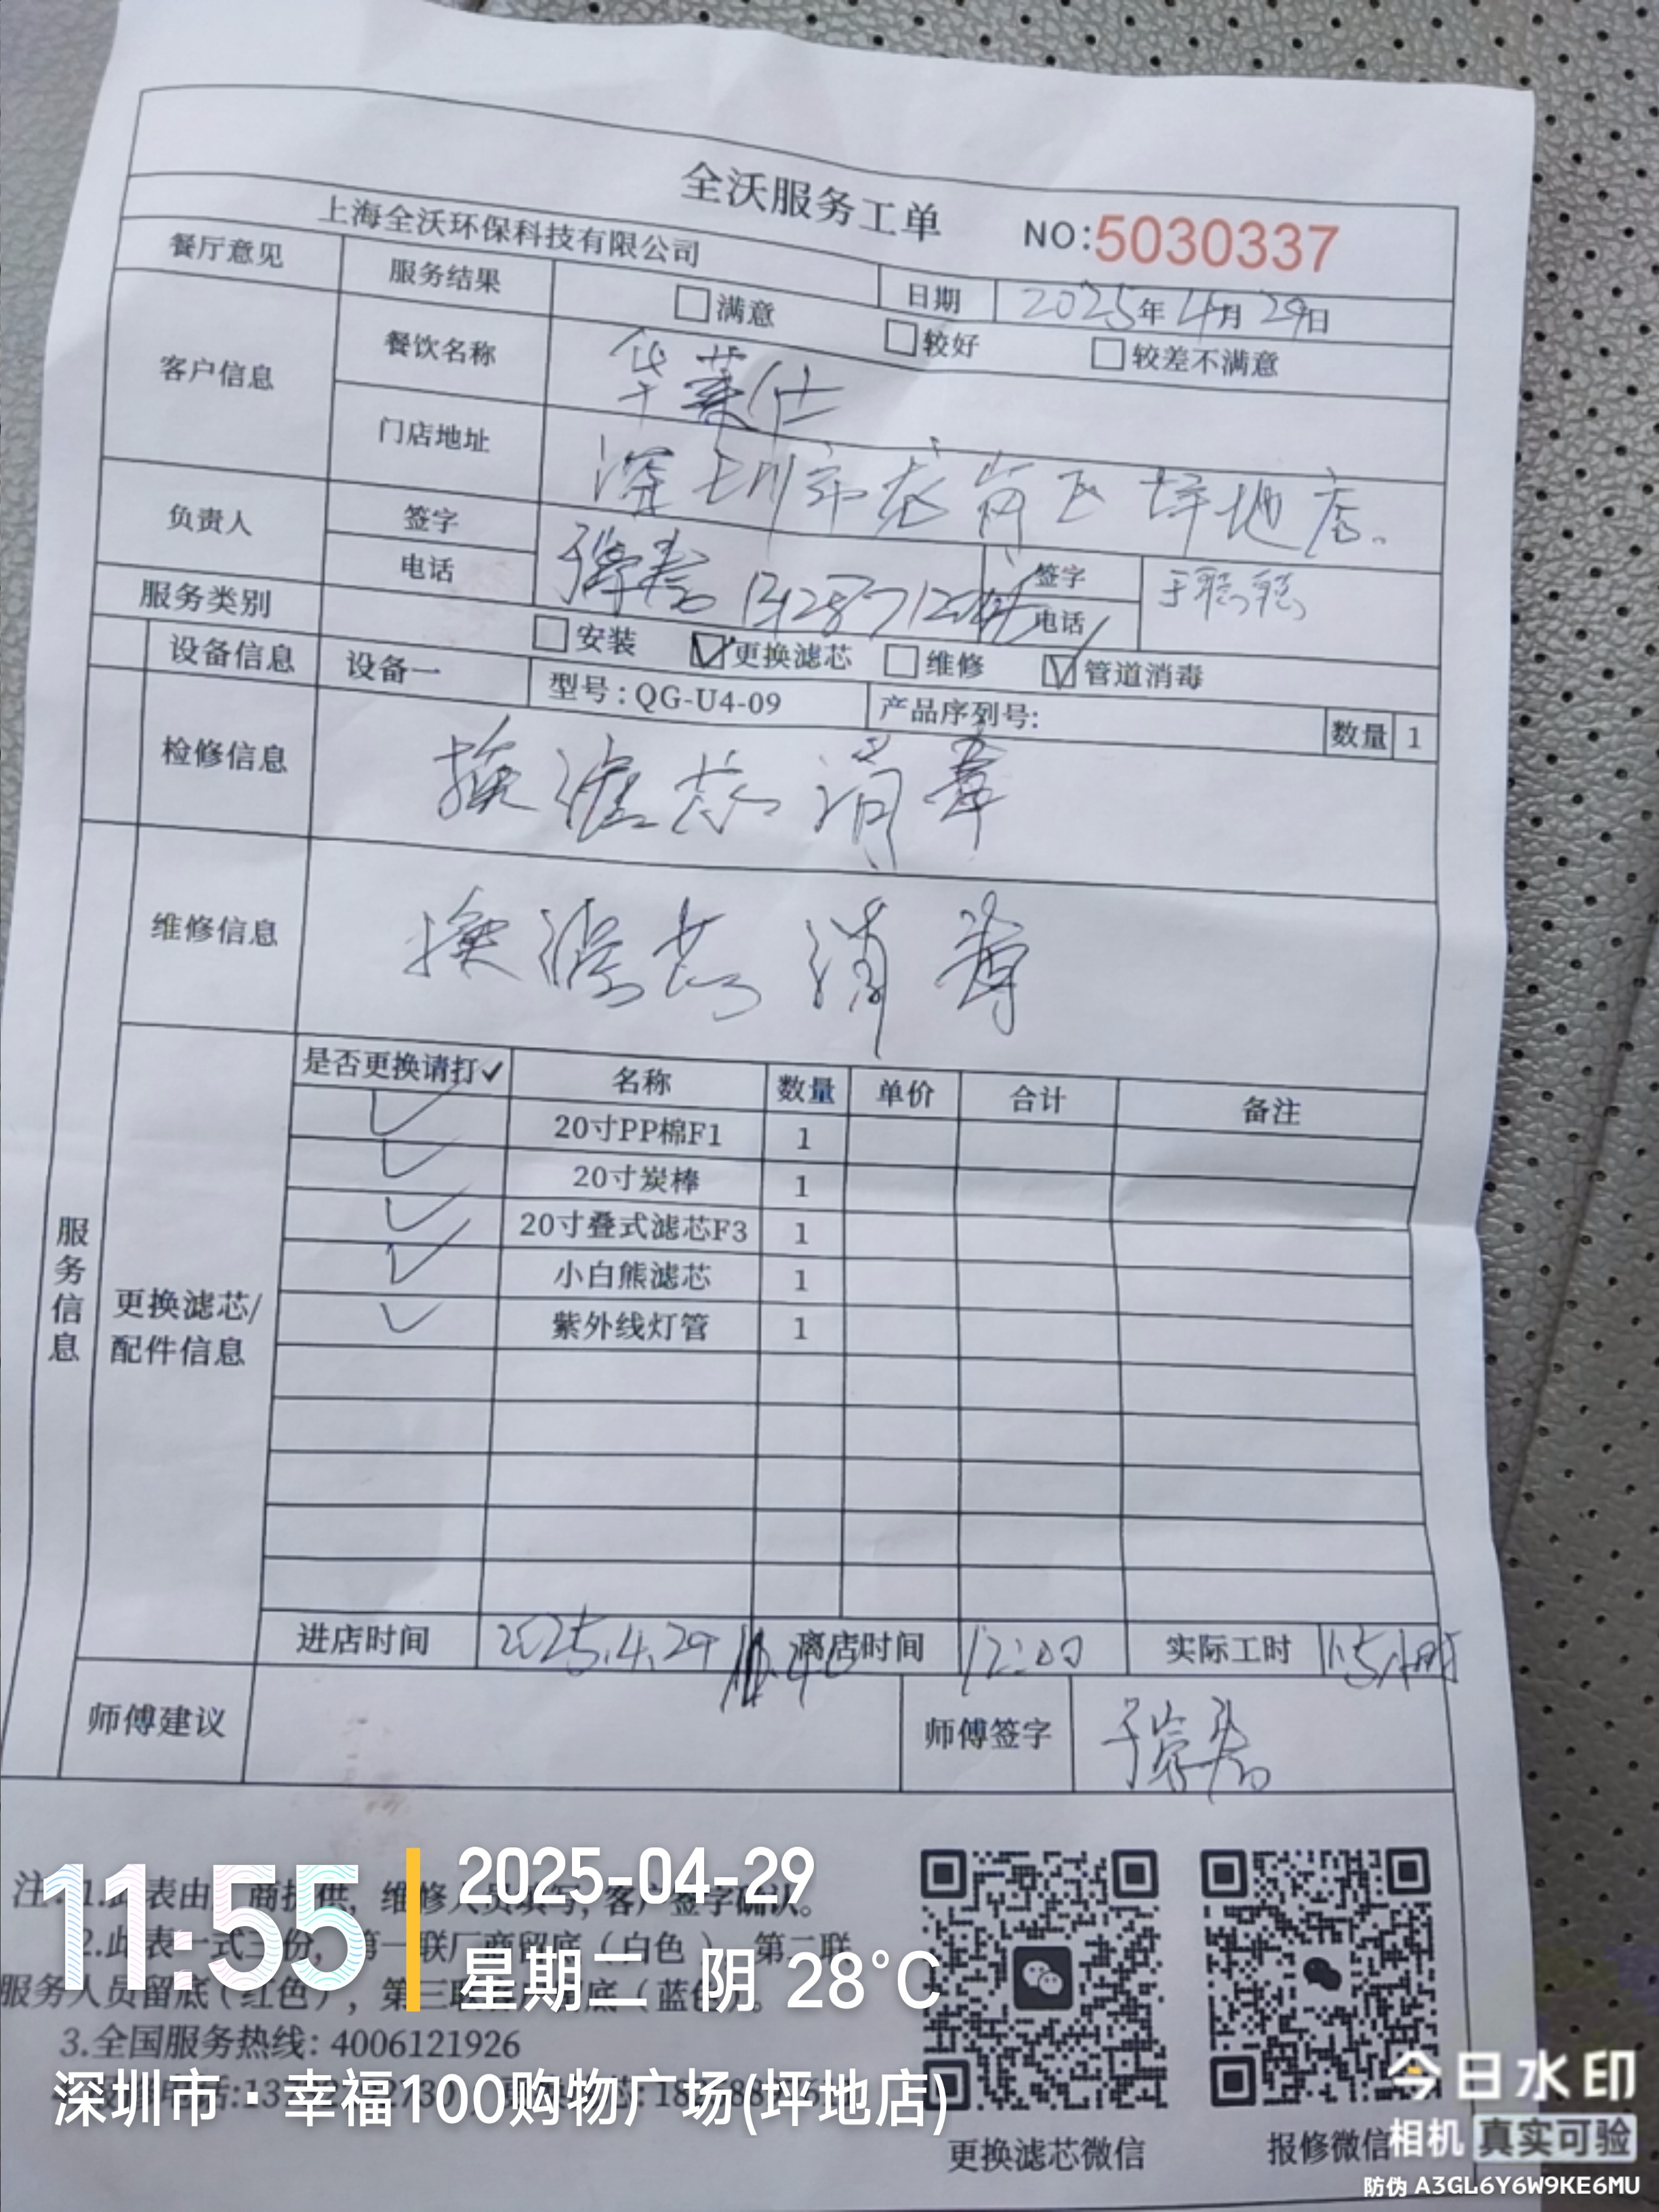 全沃服务工单
NO:5030337
上海全沃环保科技有限公司
日期 2025年4月29日
餐厅意见 服务结果 满意 较好 较差不满意
客户信息 餐饮名称 华莱仕
门店地址 深圳市龙岗区坪地店.
负责人 签字 签字 于聪聪
电话 电话
服务类别 安装 更换滤芯 维修 管道消毒
设备信息 设备一 型号:QG-U4-09 产品序列号: 数量 1
检修信息 换滤芯消毒
维修信息 换滤芯消毒
服务信息
更换滤芯/配件信息
是否更换请打✓ 名称 数量 单价 合计 备注
✓ 20寸PP棉F1 1
✓ 20寸炭棒 1
✓ 20寸叠式滤芯F3 1
✓ 小白熊滤芯 1
✓ 紫外线灯管 1
进店时间 2025.4.29 离店时间 12:00 实际工时 1.5小时
师傅建议 师傅签字
注 1.此表由 商提供, 维修人员填写, 客户签字确认。
2.此表一式三份, 第一联厂商留底(白色), 第二联
服务人员留底(红色), 第三联 底(蓝色)。
3.全国服务热线: 4006121926
更换滤芯微信 报修微信
11:55
2025-04-29
星期二 阴 28°C
深圳市·幸福100购物广场(坪地店)
今日水印
相机 真实可验
防伪 A3GL6Y6W9KE6MU